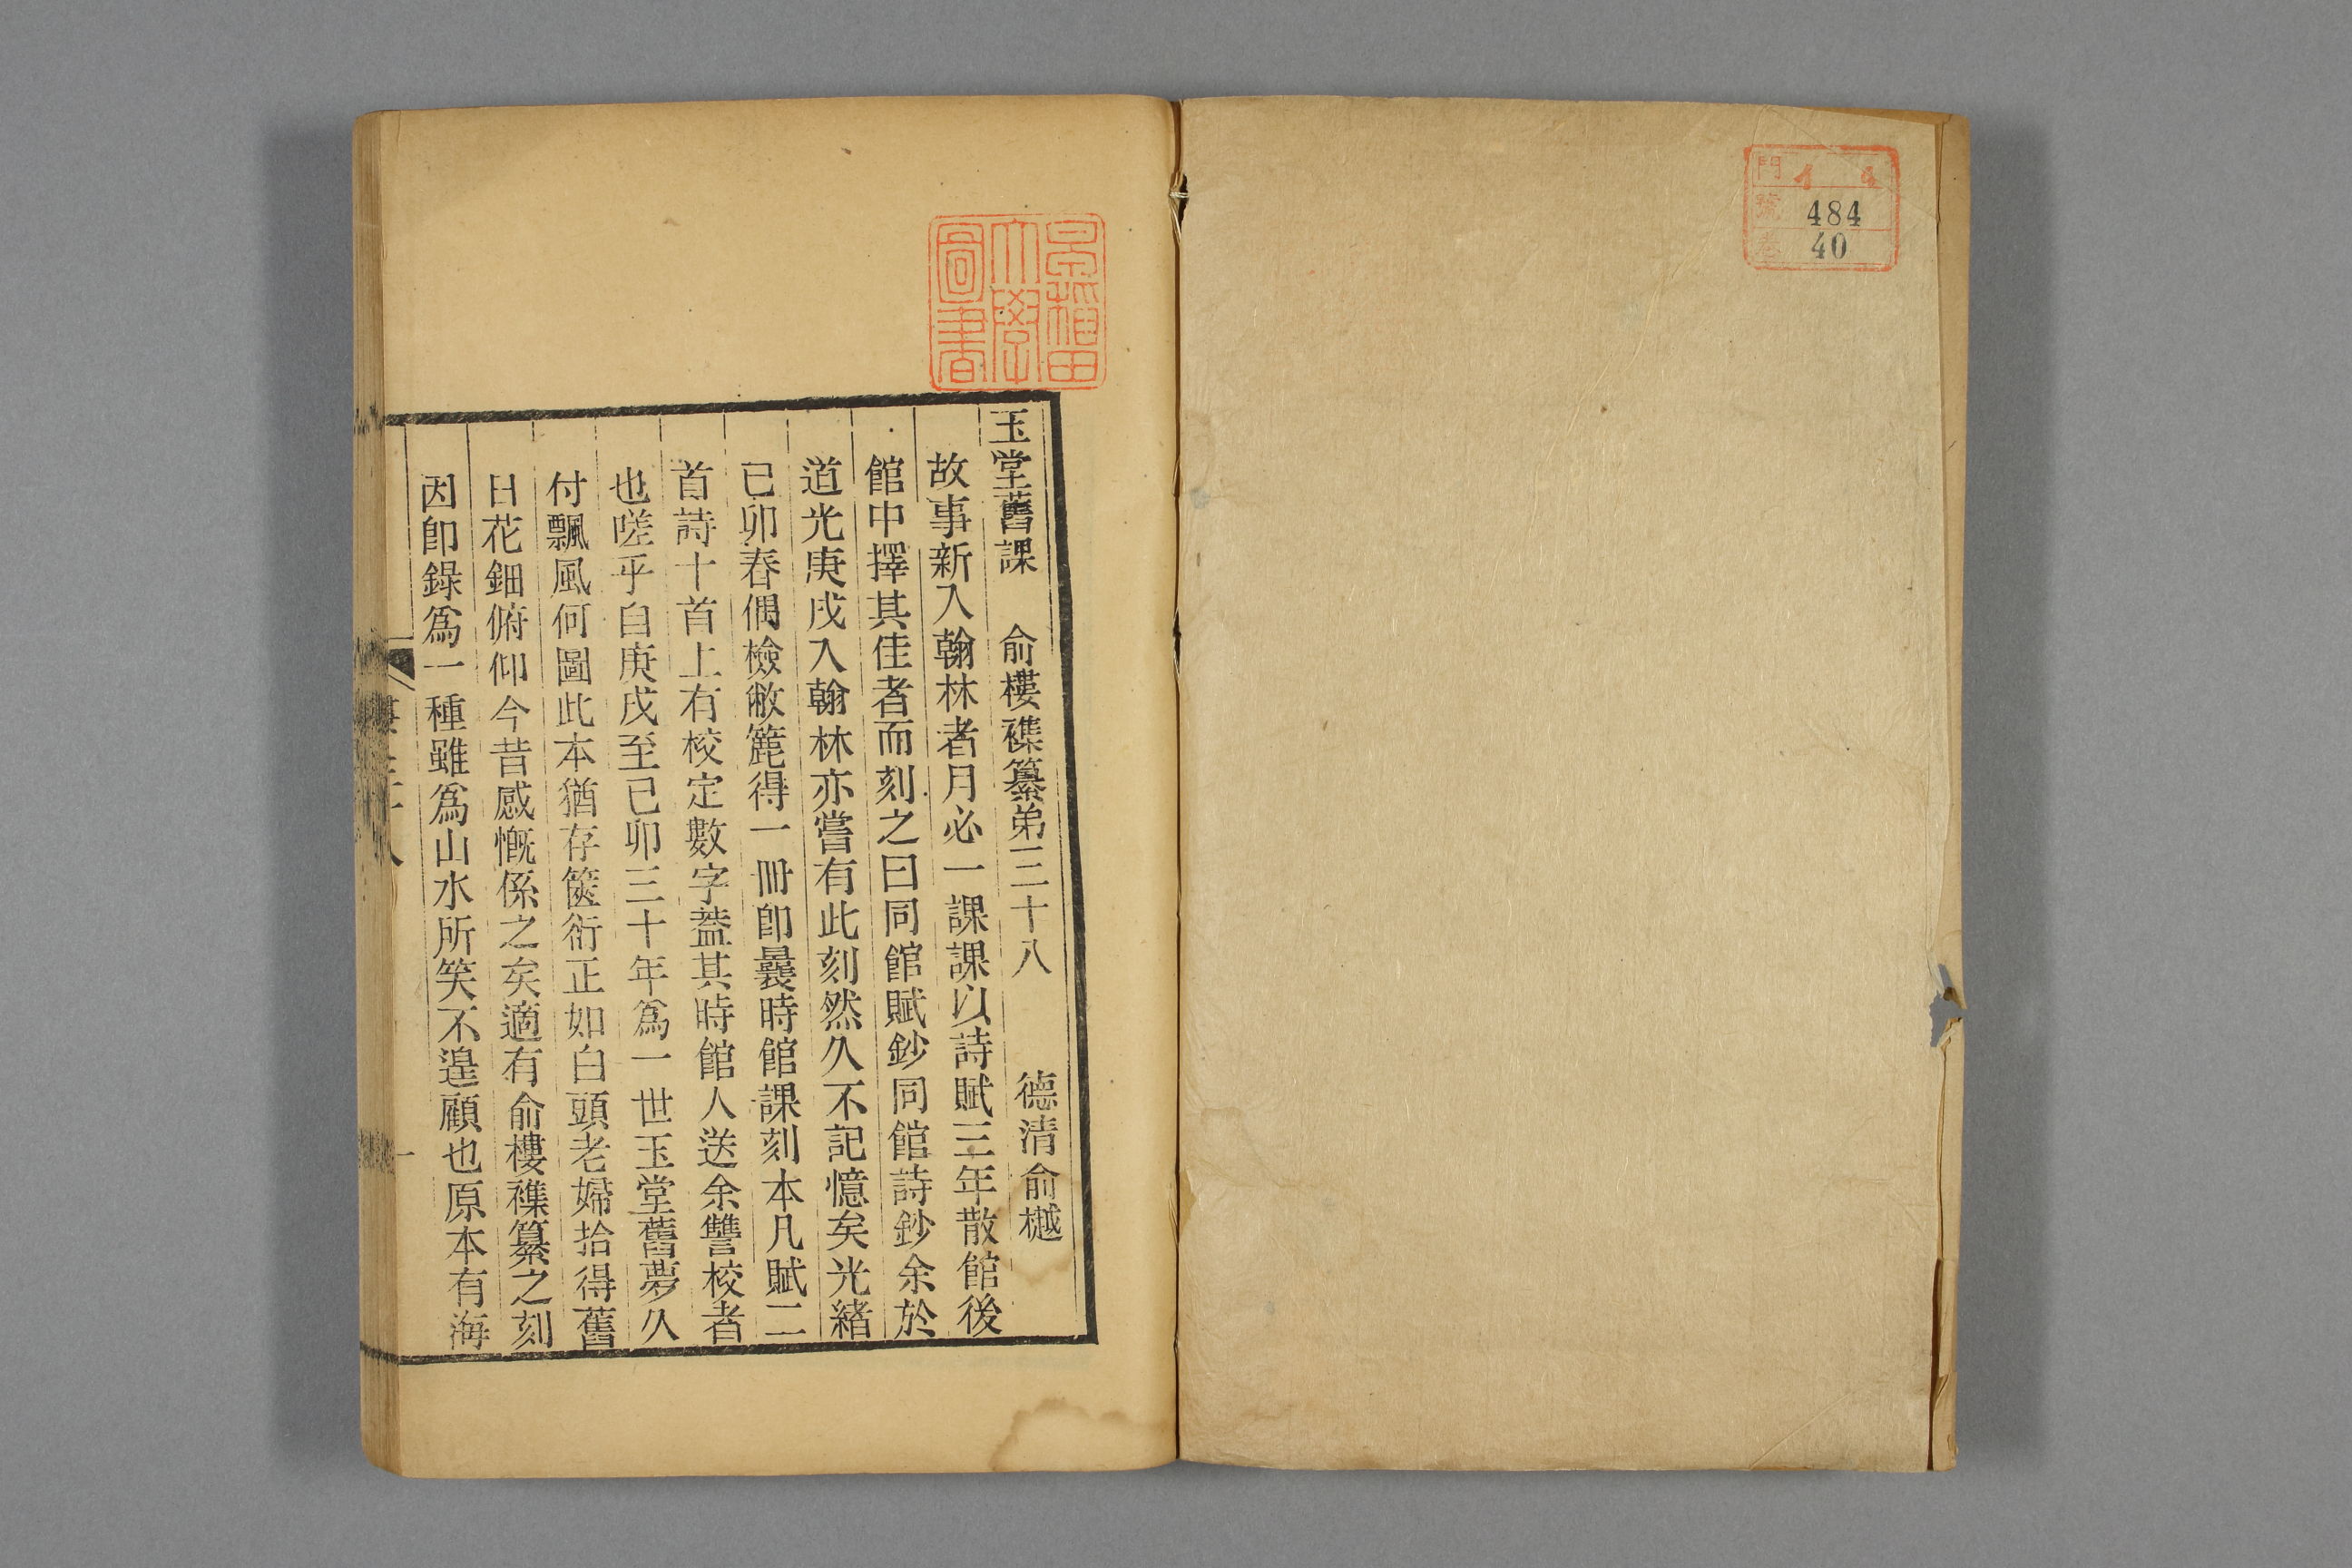 門 イ 4
號 484
卷 40
早稲田
大學
圖書
玉堂舊課 俞樓襍纂弟三十八 德清俞樾
故事新入翰林者月必一課課以詩賦三年散館後
館中擇其佳者而刻之曰同館賦鈔同館詩鈔余於
道光庚戌入翰林亦嘗有此刻然久不記憶矣光緒
己卯春偶檢敝簏得一冊卽曩時館課刻本凡賦二
首詩十首上有校定數字葢其時館人送余讐校者
也嗟乎自庚戌至己卯三十年爲一世玉堂舊夢久
付飄風何圖此本猶存篋衍正如白頭老婦拾得舊
日花鈿俯仰今昔感慨係之矣適有俞樓襍纂之刻
因卽錄爲一種雖爲山水所笑不遑顧也原本有海